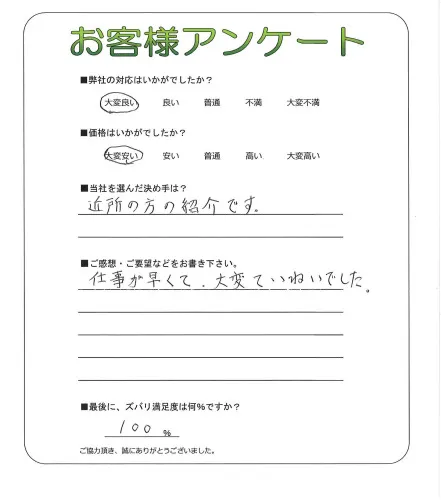 お客様アンケート
■弊社の対応はいかがでしたか？
大変良い 良い 普通 不満 大変不満
■価格はいかがでしたか？
大変安い 安い 普通 高い 大変高い
■当社を選んだ決め手は？
近所の方の紹介です。
■ご感想・ご要望などをお書き下さい。
仕事が早くて、大変ていねいでした。
■最後に、ズバリ満足度は何％ですか？
100 ％
ご協力頂き、誠にありがとうございました。